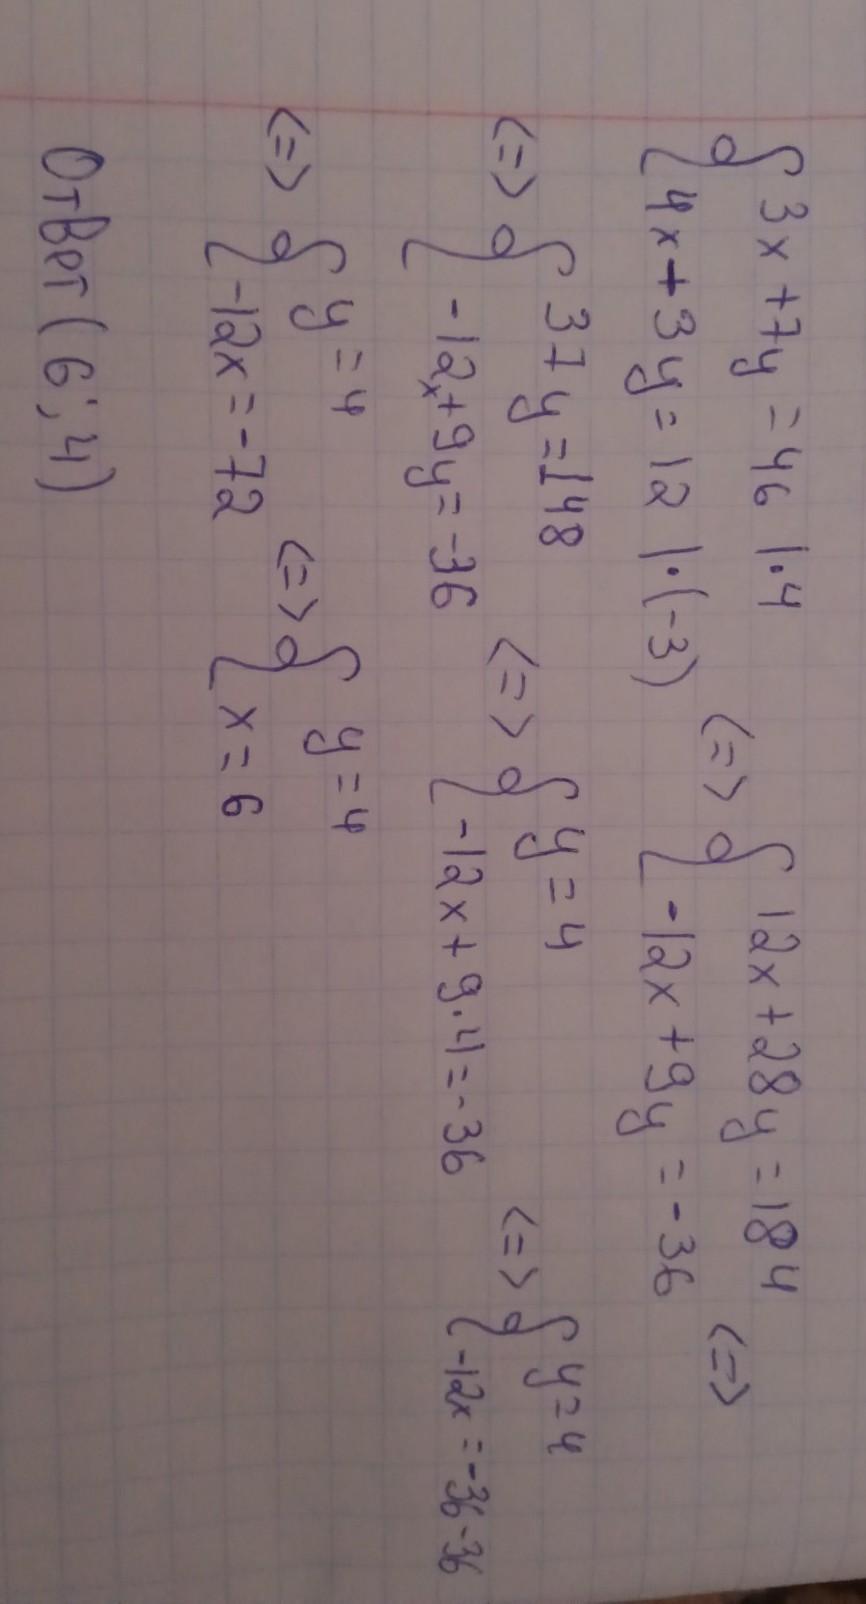 { 3x + 7y = 46 | · 4
{ 4x + 3y = 12 | · (-3)
<=> { 12x + 28y = 184
{ -12x + 9y = -36 <=>
<=> { 37y = 148
{ -12x + 9y = -36
<=> { y = 4
{ -12x + 9 · 4 = -36
<=> { y = 4
{ -12x = -36 - 36
<=> { y = 4
{ -12x = -72
<=> { y = 4
{ x = 6
Ответ (6; 4)